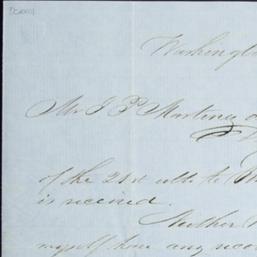 Washington
Mr J P Martin
of the 21st ulto to
is received.
Neither
myself have any reco